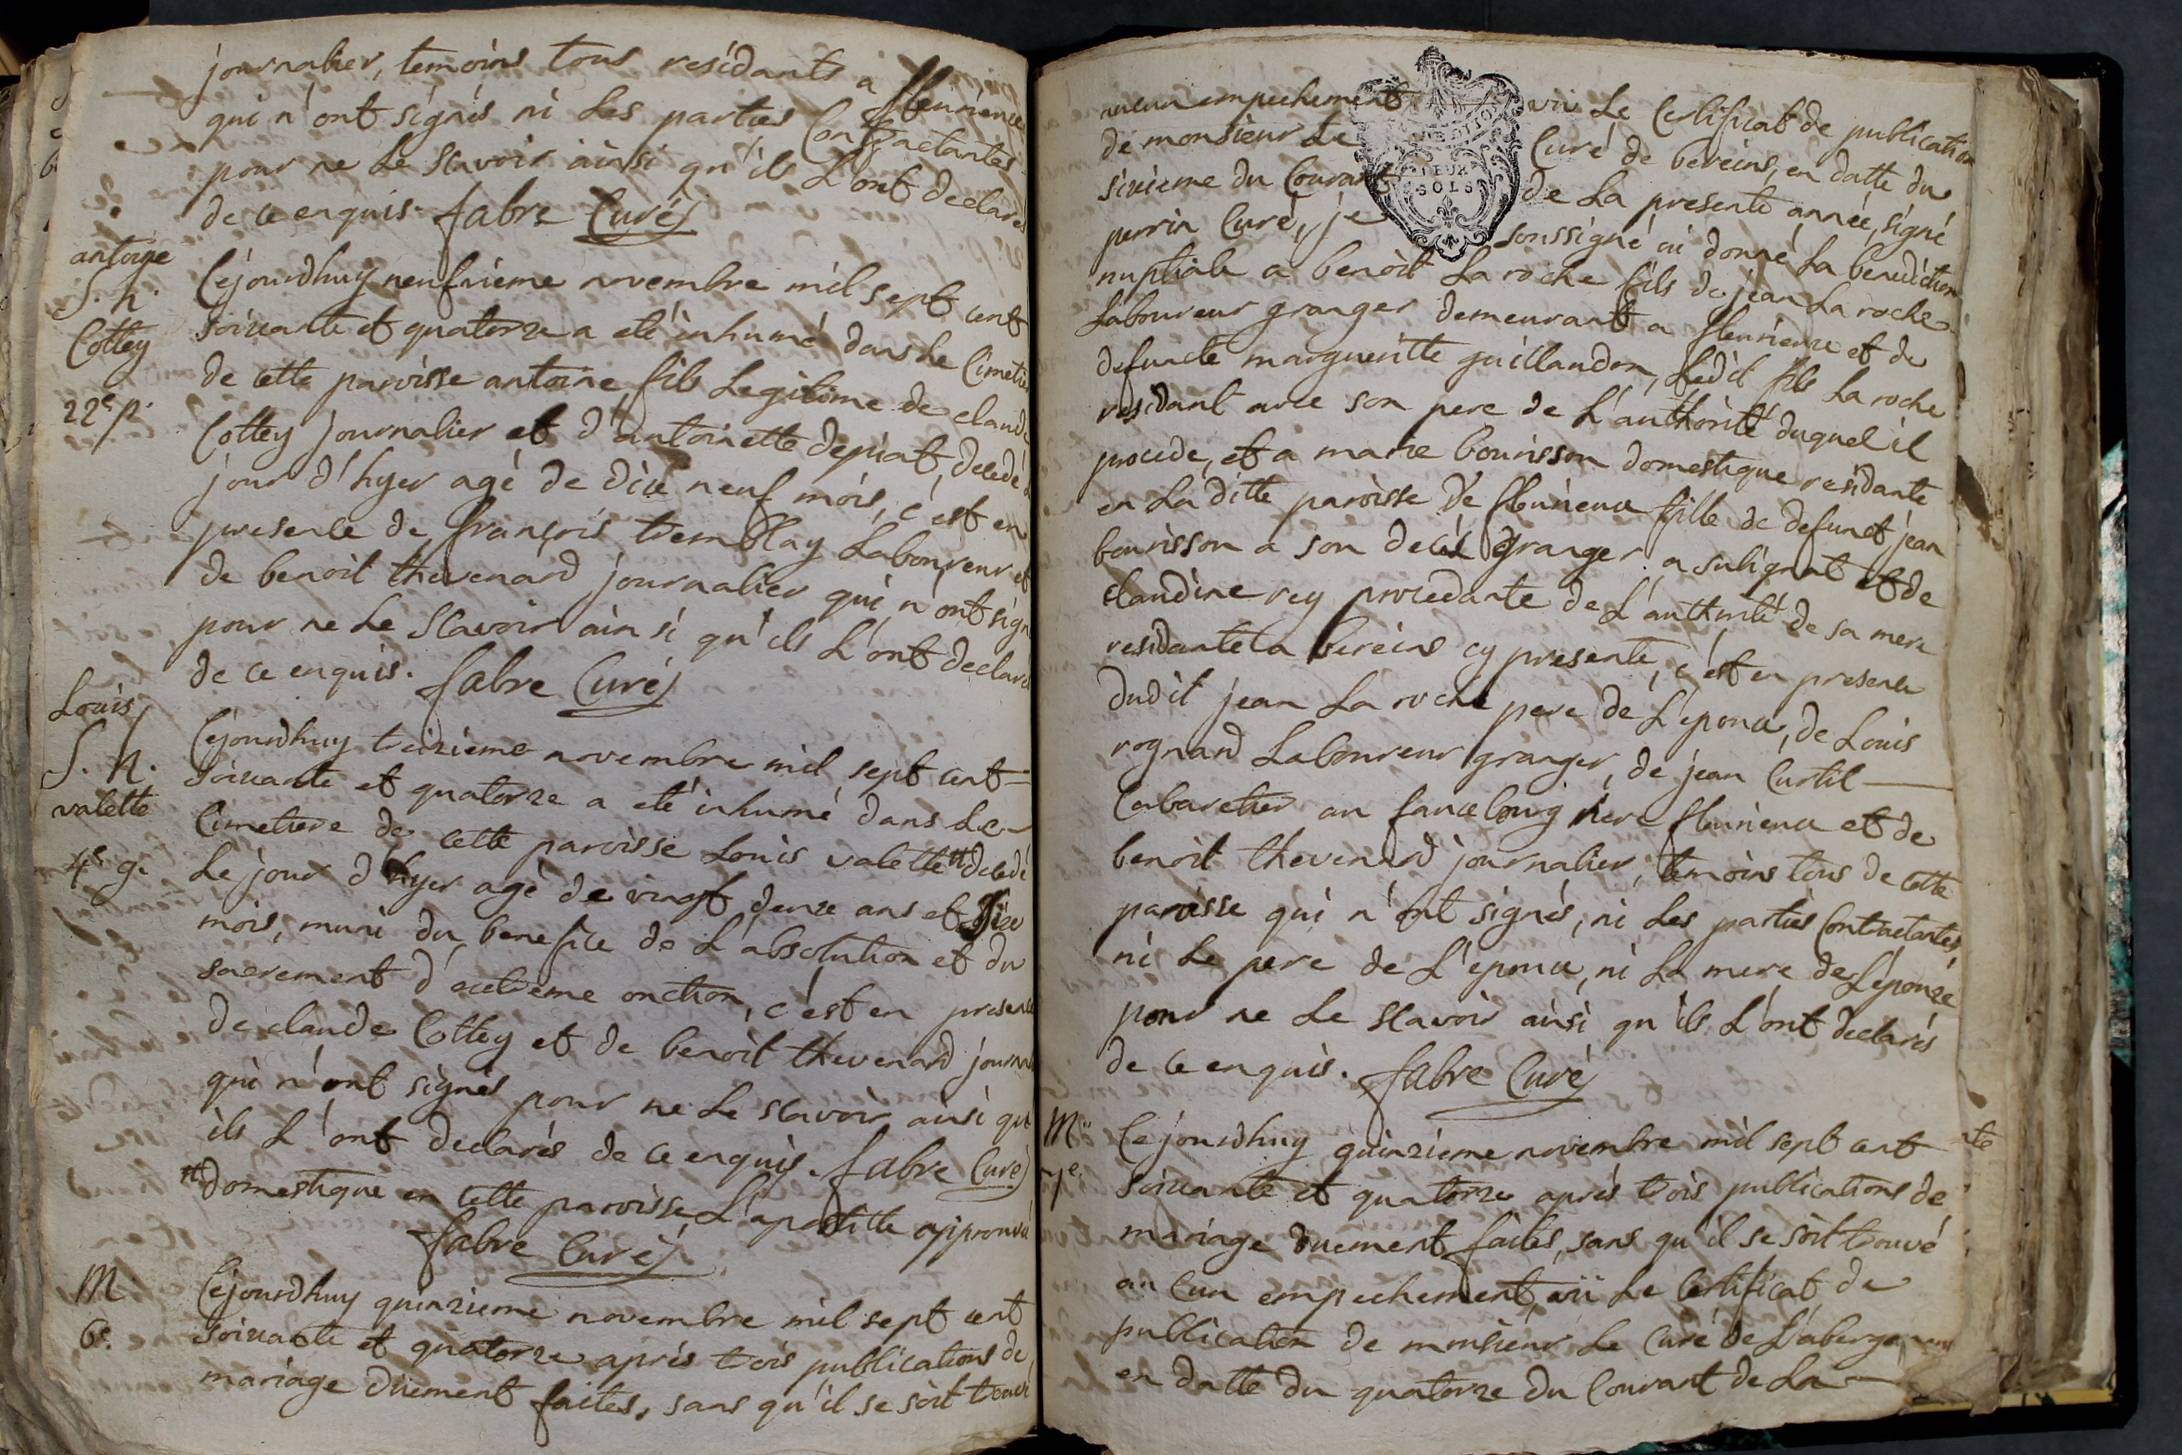 journalier, temoins tous residants a fleurieux
qui n'ont signés ni Les parties Contractantes
pour ne Le Scavoir ainsi qu'ils L'ont declarés
de ce enquis. fabre Curé
antoine
S. n.
Cottey
22e p.
Cejourdhuy neufvieme novembre mil sept cent
soixante et quatorze a eté inhumé dans Le Cimetie
de cette paroisse antoine fils Legitime de claude
Cottey journalier et d'antoinette depiat, decedé
jour d'hyer agé de dix neuf mois, c'est en
presence de françois tremblay Laboureur et
de benoit thevenard journalier qui n'ont sign
pour ne Le Scavoir ainsi qu'ils L'ont declarés
de ce enquis. fabre Curé
Louis
S. n.
valette
4e g.
Cejourdhuy treizieme novembre mil sept cent
soixante et quatorze a eté inhumé dans Le
Cimetiere de cette paroisse Louis valette decedé
Le jour d'hyer agé de vingt deux ans et dix
mois, muni du benefice de L'absolution et du
sacrement d'extreme onction, c'est en presence
de claude Cottey et de benoit thevenard journa
qui n'ont signés pour ne Le scavoir ainsi qu
ils L'ont declarés de ce enquis. fabre Curé
domestique en cette paroisse L'apostille approuvé
fabre Curé
M.
6e.
Cejourdhuy quinzieme novembre mil sept cent
soixante et quatorze aprés trois publications de
mariage düement faites, sans qu'il se soit trouvé
aucun empechement vü Le Certificat de publication
de monsieur Le Curé de bereins, en datte du
sixieme du Courant de La presente année, signé
perrin Curé, je soussigné ai donné La benediction
nuptiale a benoit La roche fils de jean La roche
Laboureur granger demeurant a fleurieux et de
defuncte margueritte guillaudon, Ledit fils La roche
residant avec son pere de L'authorité duquel il
procede, et a marie bourisson domestique residante
en La ditte paroisse de fleurieux fille de defunct jean
bourisson a son decés granger a sulignat et de
claudine rey procedante de L'authorité de sa mere
residante a bereins cy presente, c'est en presence
dudit jean La roche pere de L'epoux, de Louis
rognard Laboureur granger, de jean Curtil
Cabaretier au fauxbourg fleurieux et de
benoit thevenard journalier, temoins tous de cette
paroisse qui n'ont signés, ni Les parties Contractantes,
ni Le pere de L'epoux, ni La mere de L'épouse
pour ne Le scavoir ainsi qu'ils L'ont declarés
de ce enquis. fabre Curé
M.
7e.
Cejourdhuy quinzieme novembre mil sept cent
soixante et quatorze aprés trois publications de
mariage düement faites, sans qu'il se soit trouvé
au cun empechement, vü Le Certificat de
publication de monsieur Le Curé de L'aberge
en datte du quatorze du Courant de La